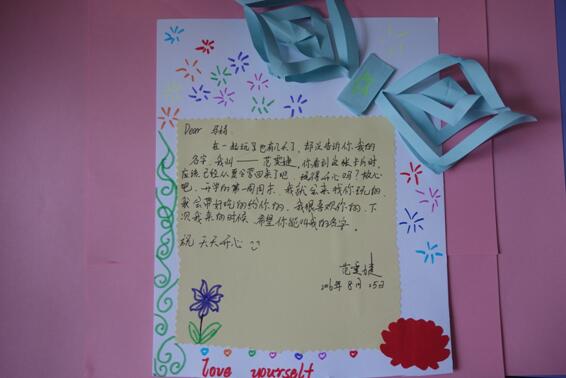 Dear
在一起玩了也有几天了，却没告诉你我的
名字，我叫——范雯婕，你看到这张卡片时，
应该已经从夏令营回来了吧，玩得开心吗？放心
吧，开学的第一周周末，我就会来找你玩的，
我会带好吃的给你的，我很喜欢你的，下
次我来的时候，希望你能叫我的名字。
祝 天天开心
范雯婕
2016年8月25日
love yourself